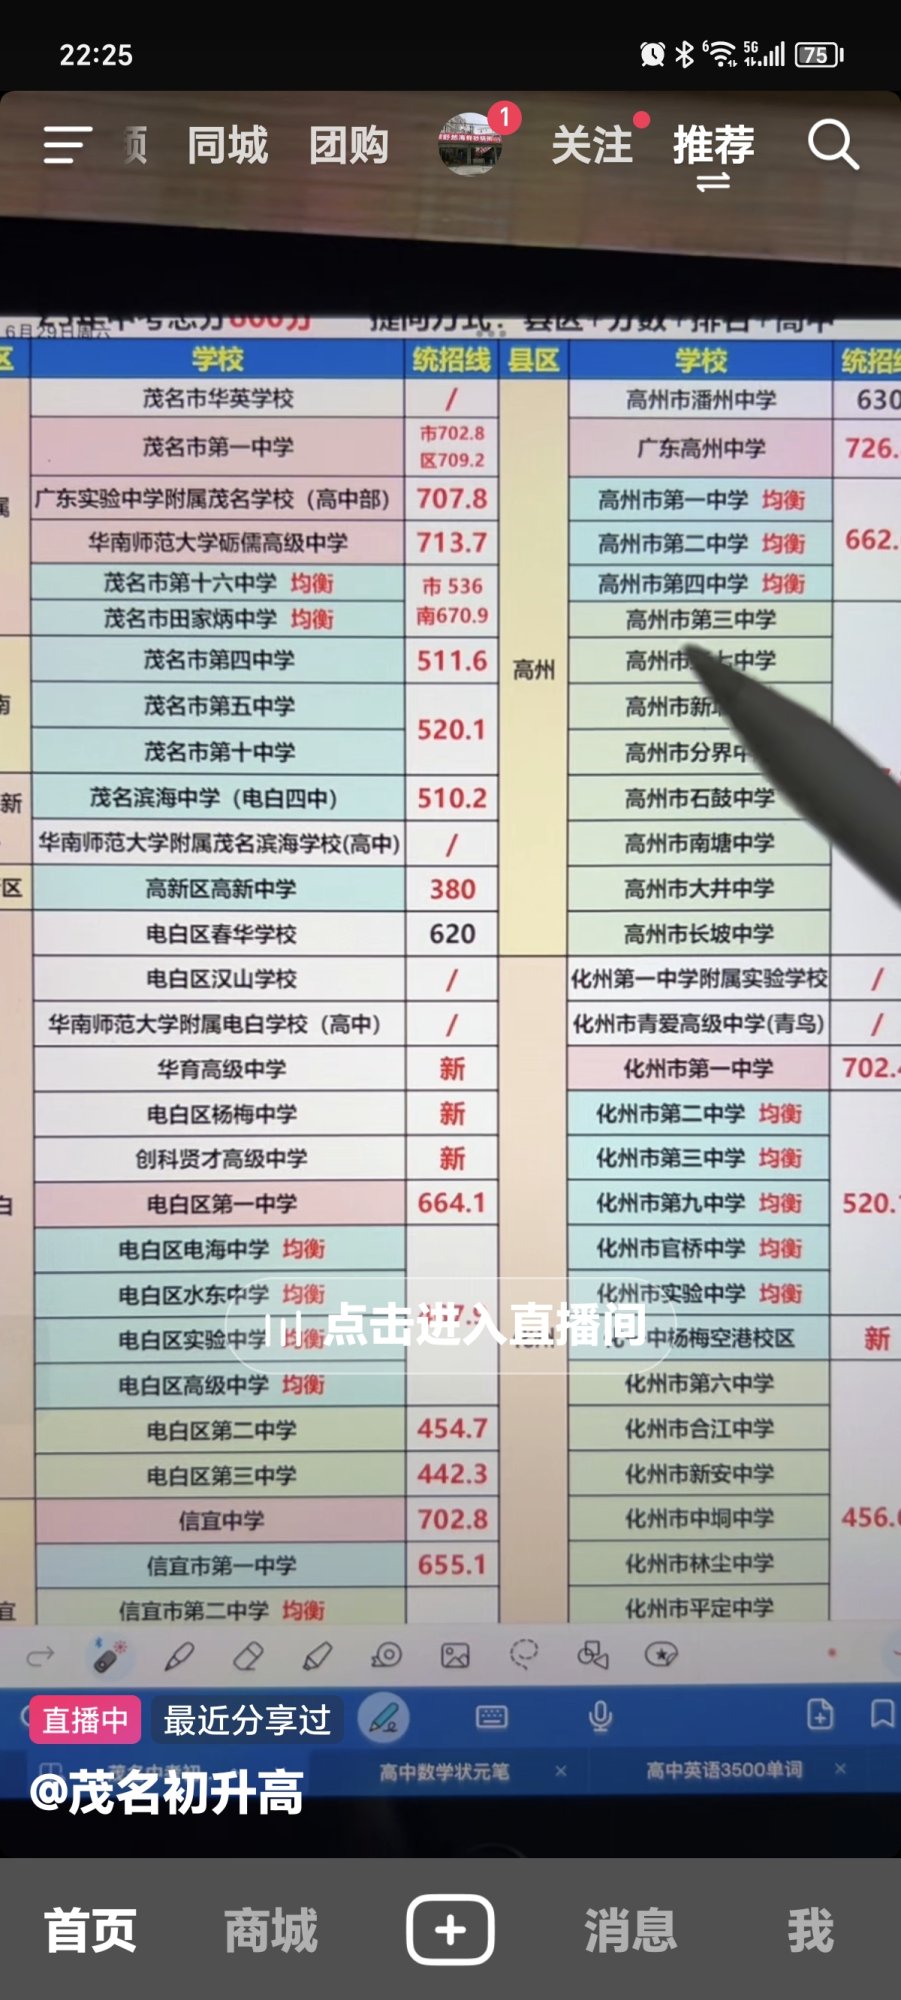 22:25
6 5G 75
同城 团购 1 关注 推荐
6月29日周六
学校 统招线 县区 学校
茂名市华英学校 / 高州市潘州中学 630
茂名市第一中学 市702.8 区709.2 广东高州中学 726.
广东实验中学附属茂名学校（高中部） 707.8 高州市第一中学 均衡
华南师范大学砺儒高级中学 713.7 高州市第二中学 均衡 662.
茂名市第十六中学 均衡 市 536 高州市第四中学 均衡
茂名市田家炳中学 均衡 南670.9 高州市第三中学
茂名市第四中学 511.6 高州 高州市 七中学
茂名市第五中学 520.1 高州市新
茂名市第十中学 高州市分界中
新 茂名滨海中学（电白四中） 510.2 高州市石鼓中学
华南师范大学附属茂名滨海学校(高中) / 高州市南塘中学
区 高新区高新中学 380 高州市大井中学
电白区春华学校 620 高州市长坡中学
电白区汉山学校 / 化州第一中学附属实验学校 /
华南师范大学附属电白学校（高中） / 化州市青爱高级中学(青鸟) /
华育高级中学 新 化州市第一中学 702.
电白区杨梅中学 新 化州市第二中学 均衡
创科贤才高级中学 新 化州市第三中学 均衡
白 电白区第一中学 664.1 化州市第九中学 均衡 520.
电白区电海中学 均衡 化州市官桥中学 均衡
电白区水东中学 均衡 化州市实验中学 均衡
点击进入直播间
电白区实验中学 均衡 中杨梅空港校区 新
电白区高级中学 均衡 化州市第六中学
电白区第二中学 454.7 化州市合江中学
电白区第三中学 442.3 化州市新安中学
信宜中学 702.8 化州市中垌中学 456.
信宜市第一中学 655.1 化州市林尘中学
宜 信宜市第二中学 均衡 化州市平定中学
直播中 最近分享过
高中数学状元笔 × 高中英语3500单词 ×
@茂名初升高
首页 商城 消息 我